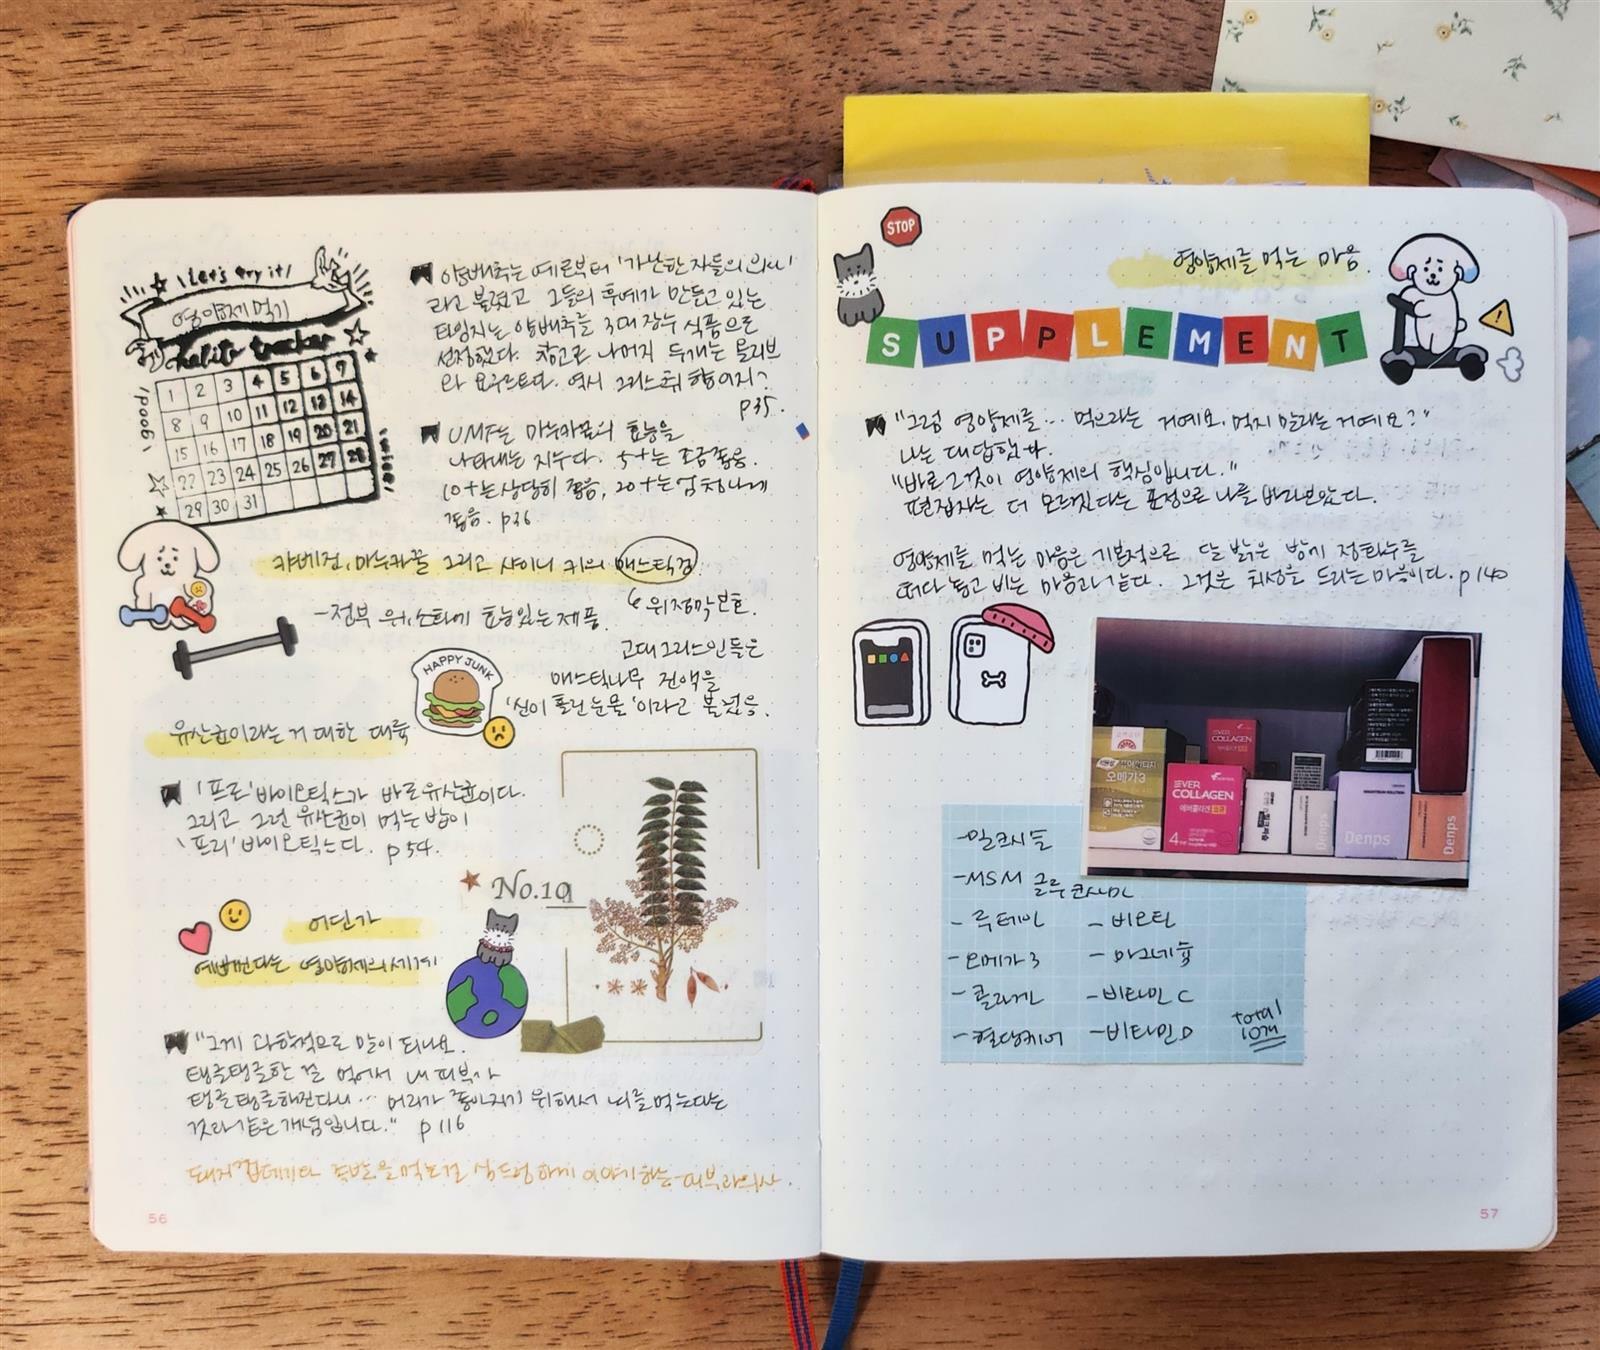 \Let's try it/
영양제 먹기
tracker
\good\
\wise\
1 2 3 4 5 6 7
8 9 10 11 12 13 14
15 16 17 18 19 20 21
22 23 24 25 26 27 28
29 30 31
양배추는 예로부터 '가난한 자들의 의사'
라고 불렸고 그들의 후예가 만들고 있는
타임지는 양배추를 3대 장수 식품으로
선정했다. 참고로 나머지 두개는 올리브
와 요구르트다. 역시 그리스 취향이지?
p35.
UMF는 마누카꿀의 효능을
나타내는 지수다. 5+는 조금 좋음.
10+는 상당히 좋음, 20+는 엄청나게
좋음. p36
카베진, 마누카꿀 그리고 샤이니 키의 매스틱검
위점막보호.
-전부 위, 소화에 효능있는 제품
고대 그리스인들은
매스틱나무 진액을
'신이 흘린 눈물'이라고 불렀음.
HAPPY JUNK
유산균이라는 거대한 대륙
'프로'바이오틱스가 바로 유산균이다.
그리고 그런 유산균이 먹는 밥이
'프리'바이오틱스다. p54.
No.10
어딘가
예뻐진다는 영양제의 세계
"그게 과학적으로 말이 되나요.
탱글탱글한 걸 먹어서 내 피부가
탱글탱글해진다니... 머리가 좋아지기 위해서 뇌를 먹는다는
것과 같은 개념입니다." p116
돼지껍데기나 족발을 먹는걸 심드렁하게 이야기하는 피부과의사.
56
STOP
영양제를 먹는 마음.
SUPPLEMENT
"그럼 영양제를... 먹으라는 거예요. 먹지 말라는 거예요?"
나는 대답했다.
"바로 그것이 영양제의 핵심입니다."
편집자는 더 모르겠다는 표정으로 나를 바라보았다.
영양제를 먹는 마음은 기본적으로 달 밝은 밤에 정화수를
떠다 놓고 비는 마음과 같다. 그것은 치성을 드리는 마음이다. p140
오메가3
COLLAGEN
EVER
COLLAGEN
에버콜라겐
4
Denps
Denps
Denps
-밀크시슬
-MSM 글루코사민
-루테인
-비오틴
-오메가3
-마그네슘
-콜라겐
-비타민C
-혈당케어
-비타민D
total
10개
57